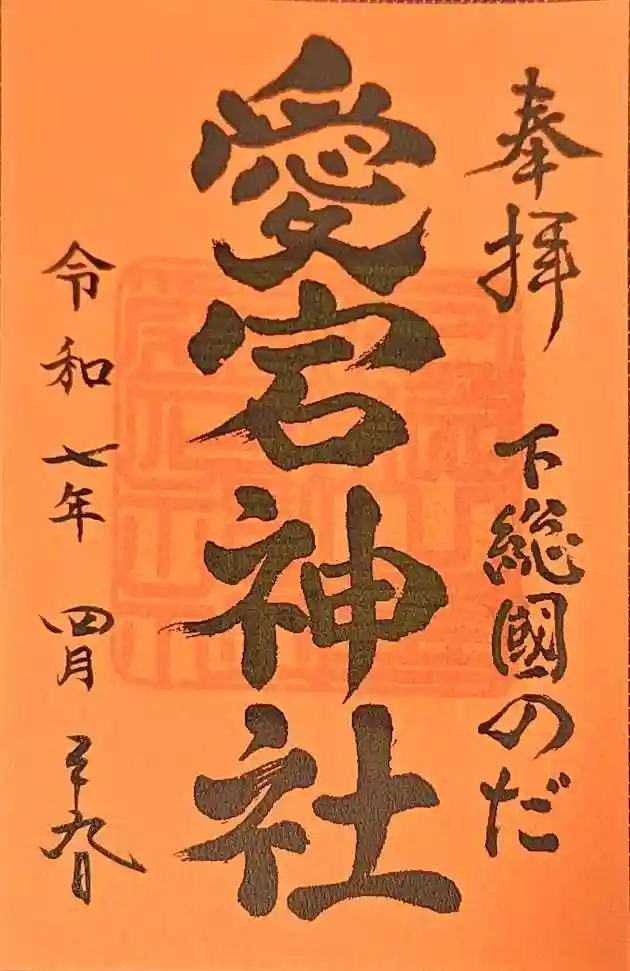 奉拝
下総國のだ
愛宕神社
令和七年
四月二十九日